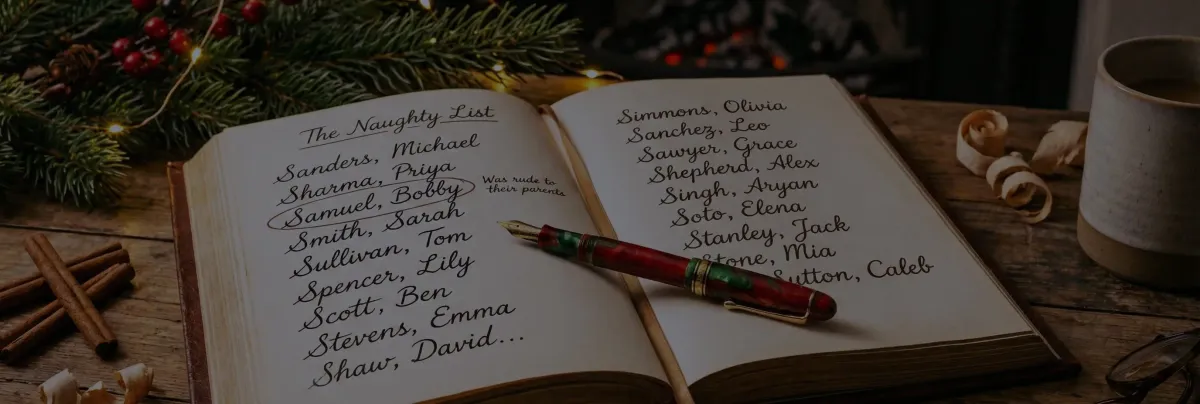 The Naughty List
Sanders, Michael
Sharma, Priya
Samuel, Bobby
Was rude to
their parents
Smith, Sarah
Sullivan, Tom
Spencer, Lily
Scott, Ben
Stevens, Emma
Shaw, David...
Simmons, Olivia
Sanchez, Leo
Sawyer, Grace
Shepherd, Alex
Singh, Aryan
Soto, Elena
Stanley, Jack
Stone, Mia
Sutton, Caleb